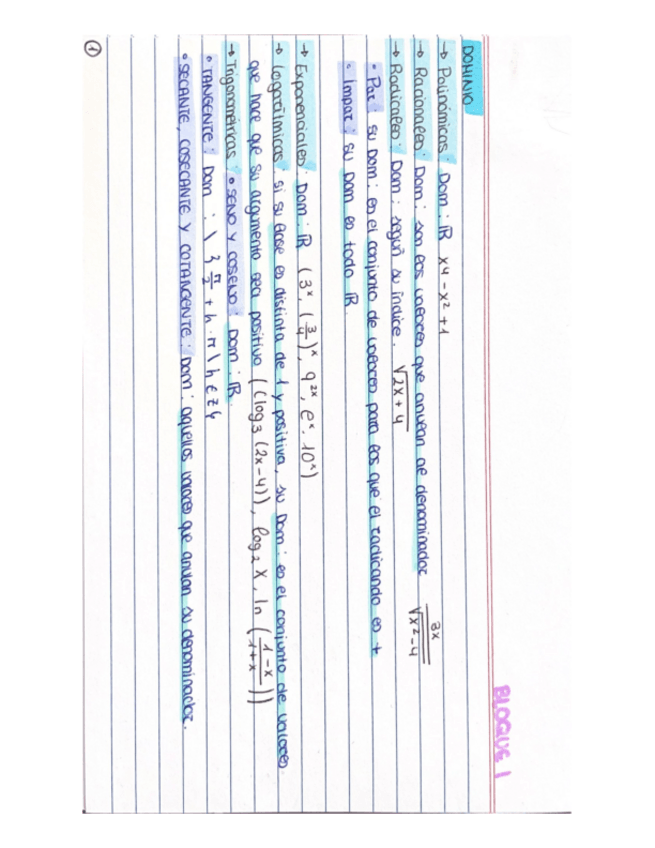 BLOQUE 1
DOMINIO
→ Polinómicas: Dom: ℝ x4 - x² + 1
→ Racionales: Dom: son los valores que anulan al denominador 3x / √x² - 4
→ Radicales: Dom: según su índice. √2x + 4
• Par: su Dom: es el conjunto de valores para los que el radicando es +
• Impar: su Dom es todo ℝ.
→ Exponenciales: Dom: ℝ (3ˣ, (3/4)ˣ, 9²ˣ, eˣ. 10ˣ)
→ Logarítmicas: si su base es distinta de 1 y positiva, su Dom: es el conjunto de valores
que hace que su argumento sea positivo ((log₃ (2x-4)), log₂ x, ln (1-x / 1+x))
→ Trigonométricas: • SENO Y COSENO: Dom: ℝ.
• TANGENTE: Dom: \ { π/2 + k · π \ k ∈ ℤ }
• SECANTE, COSECANTE Y COTANGENTE: Dom: aquellos valores que anulan su denominador.
1